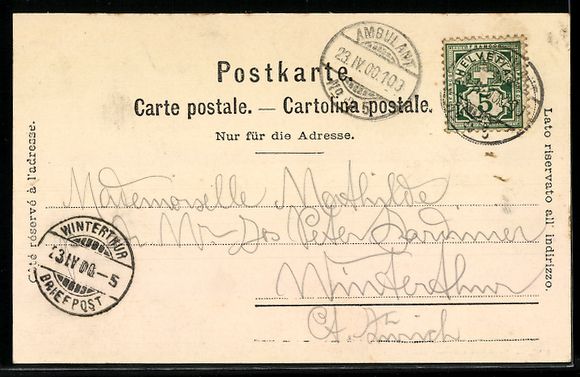 Postkarte.
Carte postale. — Cartolina postale.
Nur für die Adresse.
Côté réservé à l'adresse.
Lato riservato all' indirizzo.
AMBULANT
23.IV.00.10
No.
HELVETIA
FRANCO
5
Mademoiselle Mathilde
Mr Jos Peter
Winterthur
Ct. Zürich
WINTERTHUR
23.IV.00.-5
BRIEFPOST